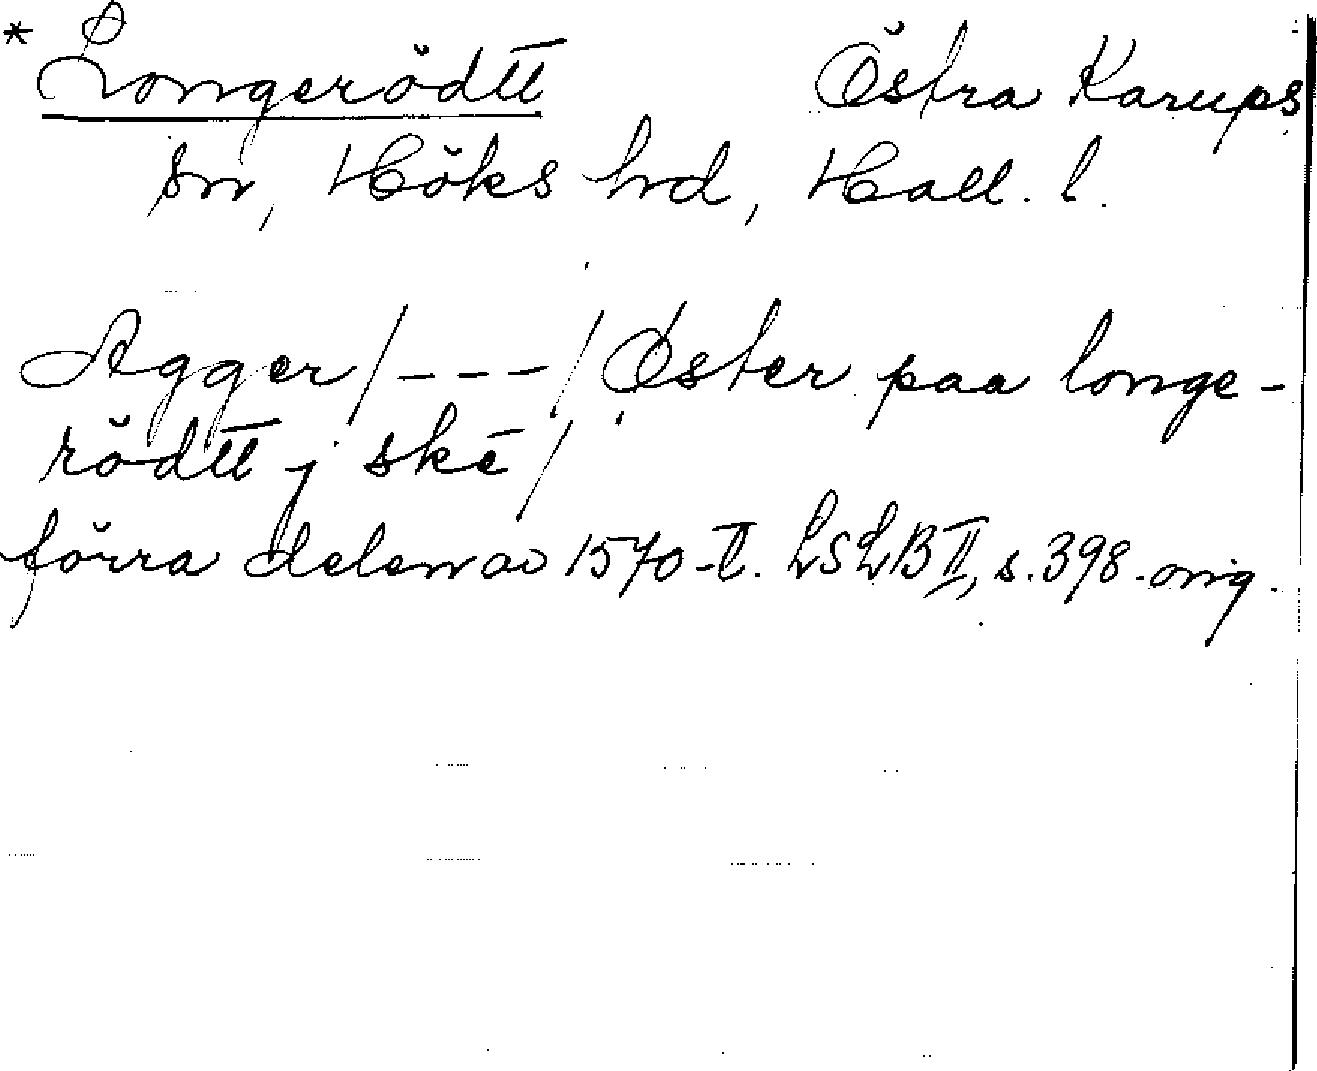 * Longerödtt Östra Karups
sn, Höks hrd, Hall. l.
Agger /---/ Öster paa longe-
rödtt j ske /
förra delen av 1570-t. LSLB II, s. 398. orig.